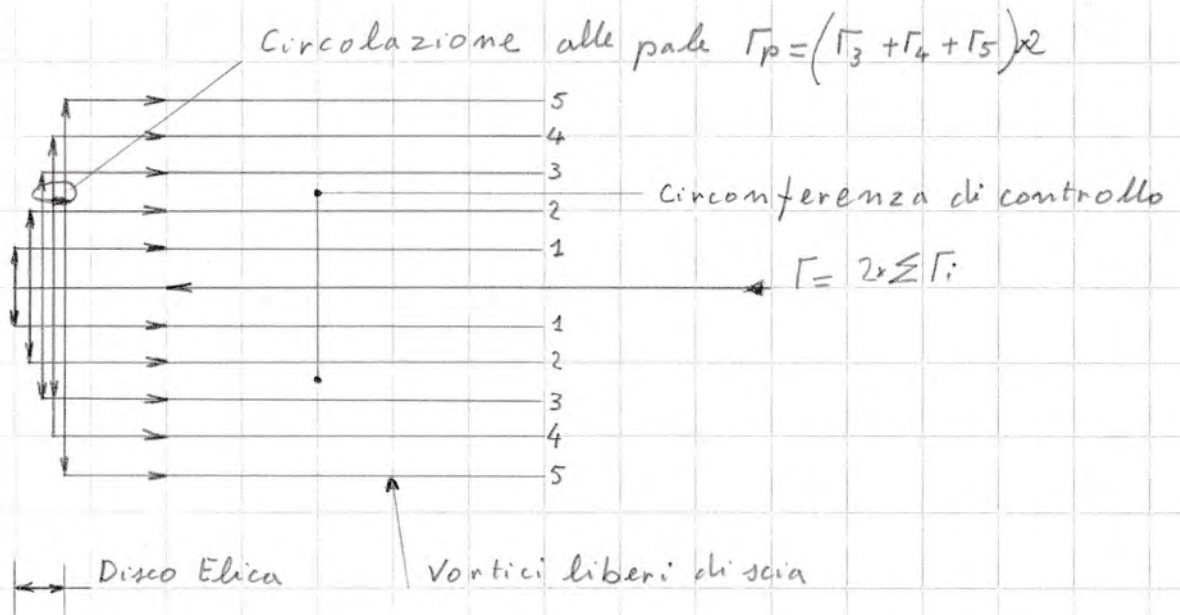 Circolazione alle pale Γp=(Γ3+Γ4+Γ5)x2
5
4
3
Circonferenza di controllo
2
1
Γ= 2x∑Γi
1
2
3
4
5
Disco Elica
Vortici liberi di scia